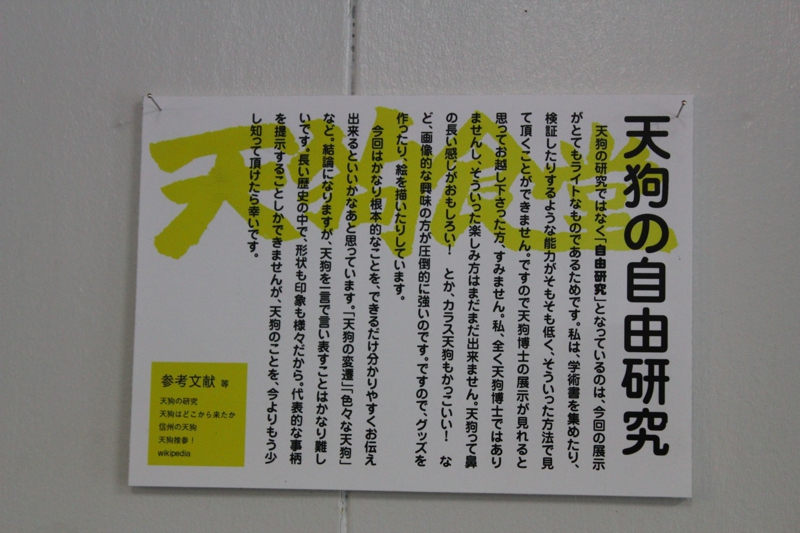 天狗の自由研究
天狗の研究ではなく「自由研究」となっているのは、今回の展示
がとてもライトなものであるためです。私は、学術書を集めたり、
検証したりするような能力がそもそも低く、そういった方法で見
て頂くことができません。ですので天狗博士の展示が見れると
思ってお越し下さった方、すみません。私、全く天狗博士ではあり
ませんし、そういった楽しみ方はまだまだ出来ません。天狗って鼻
の長い感じがおもしろい！とか、カラス天狗もかっこいい！な
ど、画像的な興味の方が圧倒的に強いのです。ですので、グッズを
作ったり、絵を描いたりしています。
今回はかなり根本的なことを、できるだけ分かりやすくお伝え
出来るといいかなあと思っています。「天狗の変遷」「色々な天狗」
など。結論になりますが、天狗を一言で言い表すことはかなり難し
いです。長い歴史の中で、形状も印象も様々だから。代表的な事柄
を提示することしかできませんが、天狗のことを、今よりもう少
し知って頂けたら幸いです。
参考文献 等
天狗の研究
天狗はどこから来たか
信州の天狗
天狗推参！
wikipedia